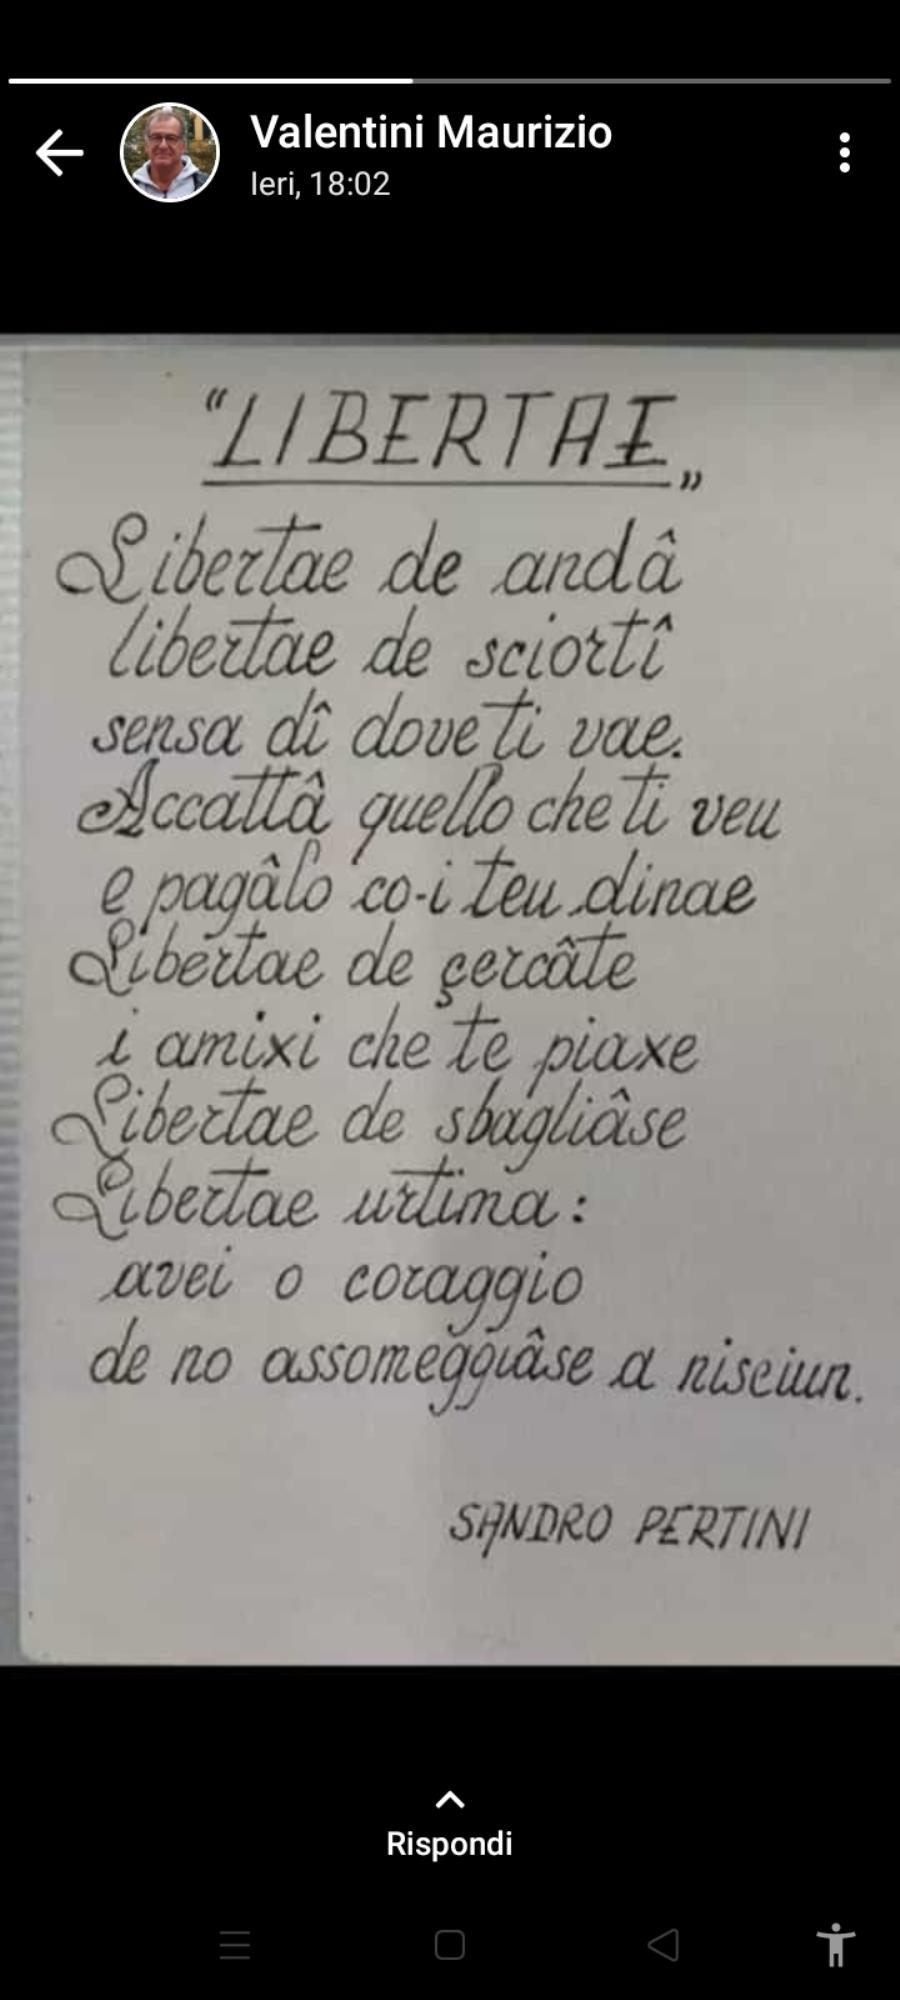 Valentini Maurizio
Ieri, 18:02
"LIBERTAE"
Libertae de andâ
libertae de sciortî
sensa dî dove ti vae.
Accattâ quello che ti veu
e pagâlo co-i teu dinae
Libertae de çercâte
i amixi che te piaxe
Libertae de sbagliâse
Libertae urtima:
avei o coraggio
de no assomeggiâse a nisciun.
SANDRO PERTINI
Rispondi